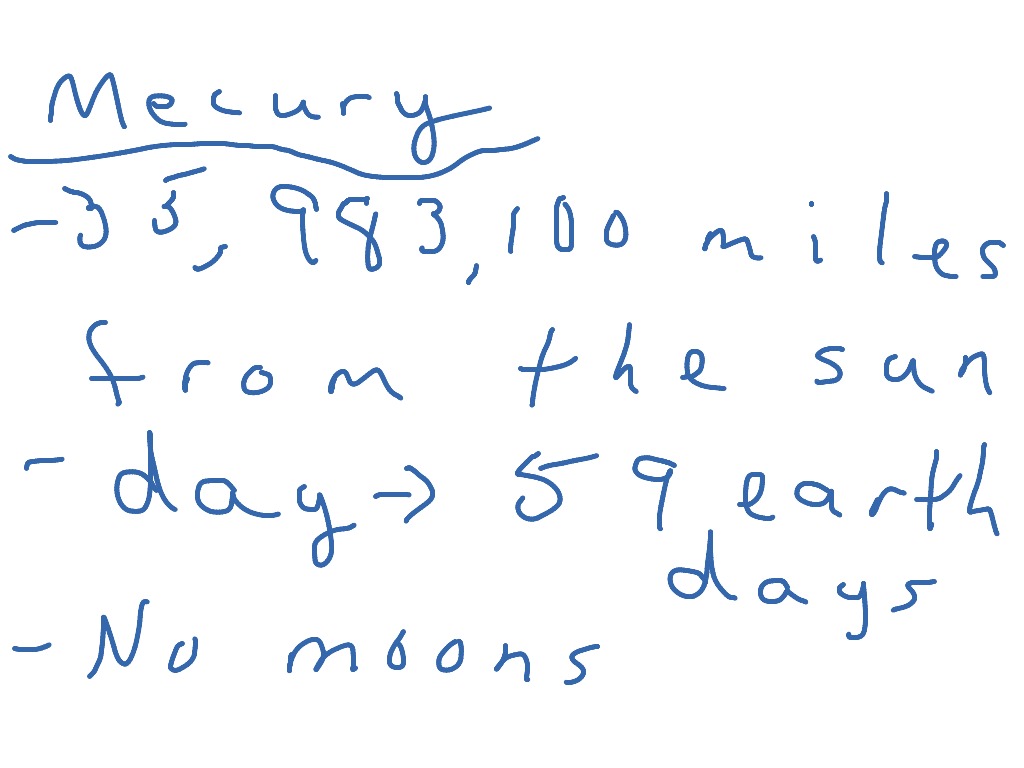 Mecury
- 35,983,100 miles
from the sun
- day → 59 earth
days
- No moons